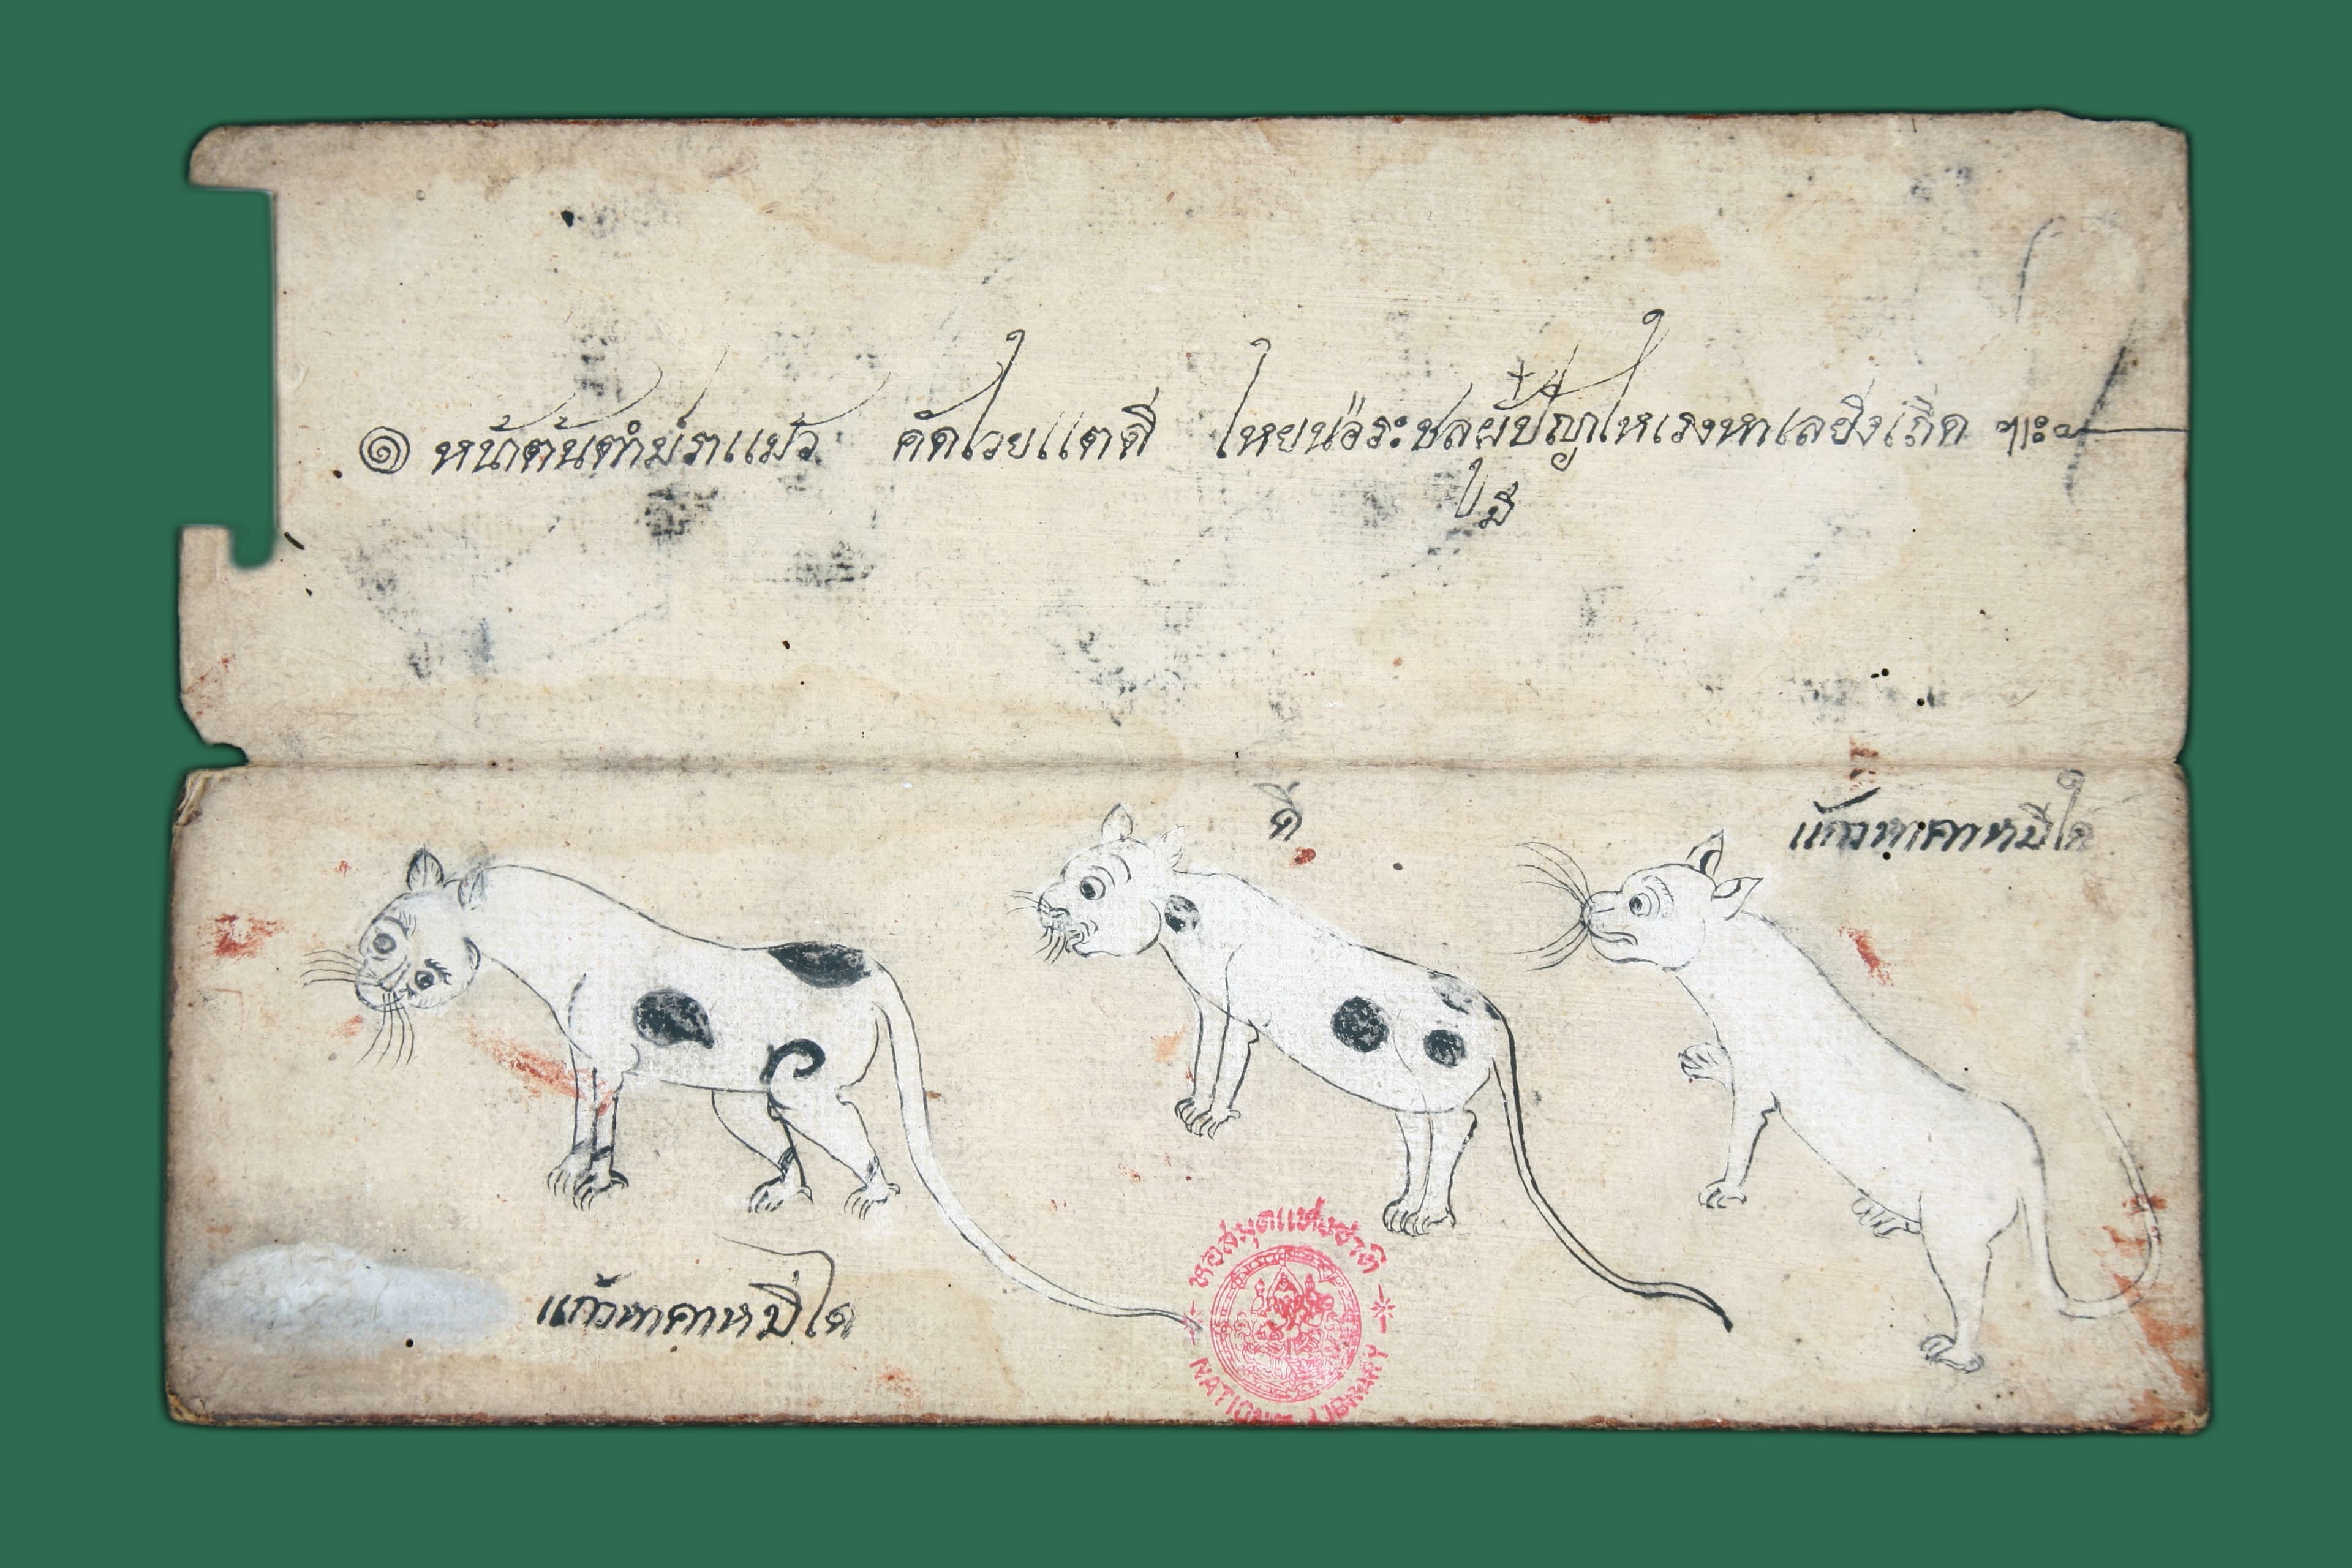 ๏ หน้าต้นตำม่ราแม้ว คัดไวยแตดี่ ไหยน่อระชลผู้ปัญญไหเรงหาเลยิ่งเถิด ฯะ
ใมี
ดี
แก้วหาคาหมีได
แก้วหาคาหมี่ได
หอสมุดแห่งชาติ
NATIONAL LIBRARY